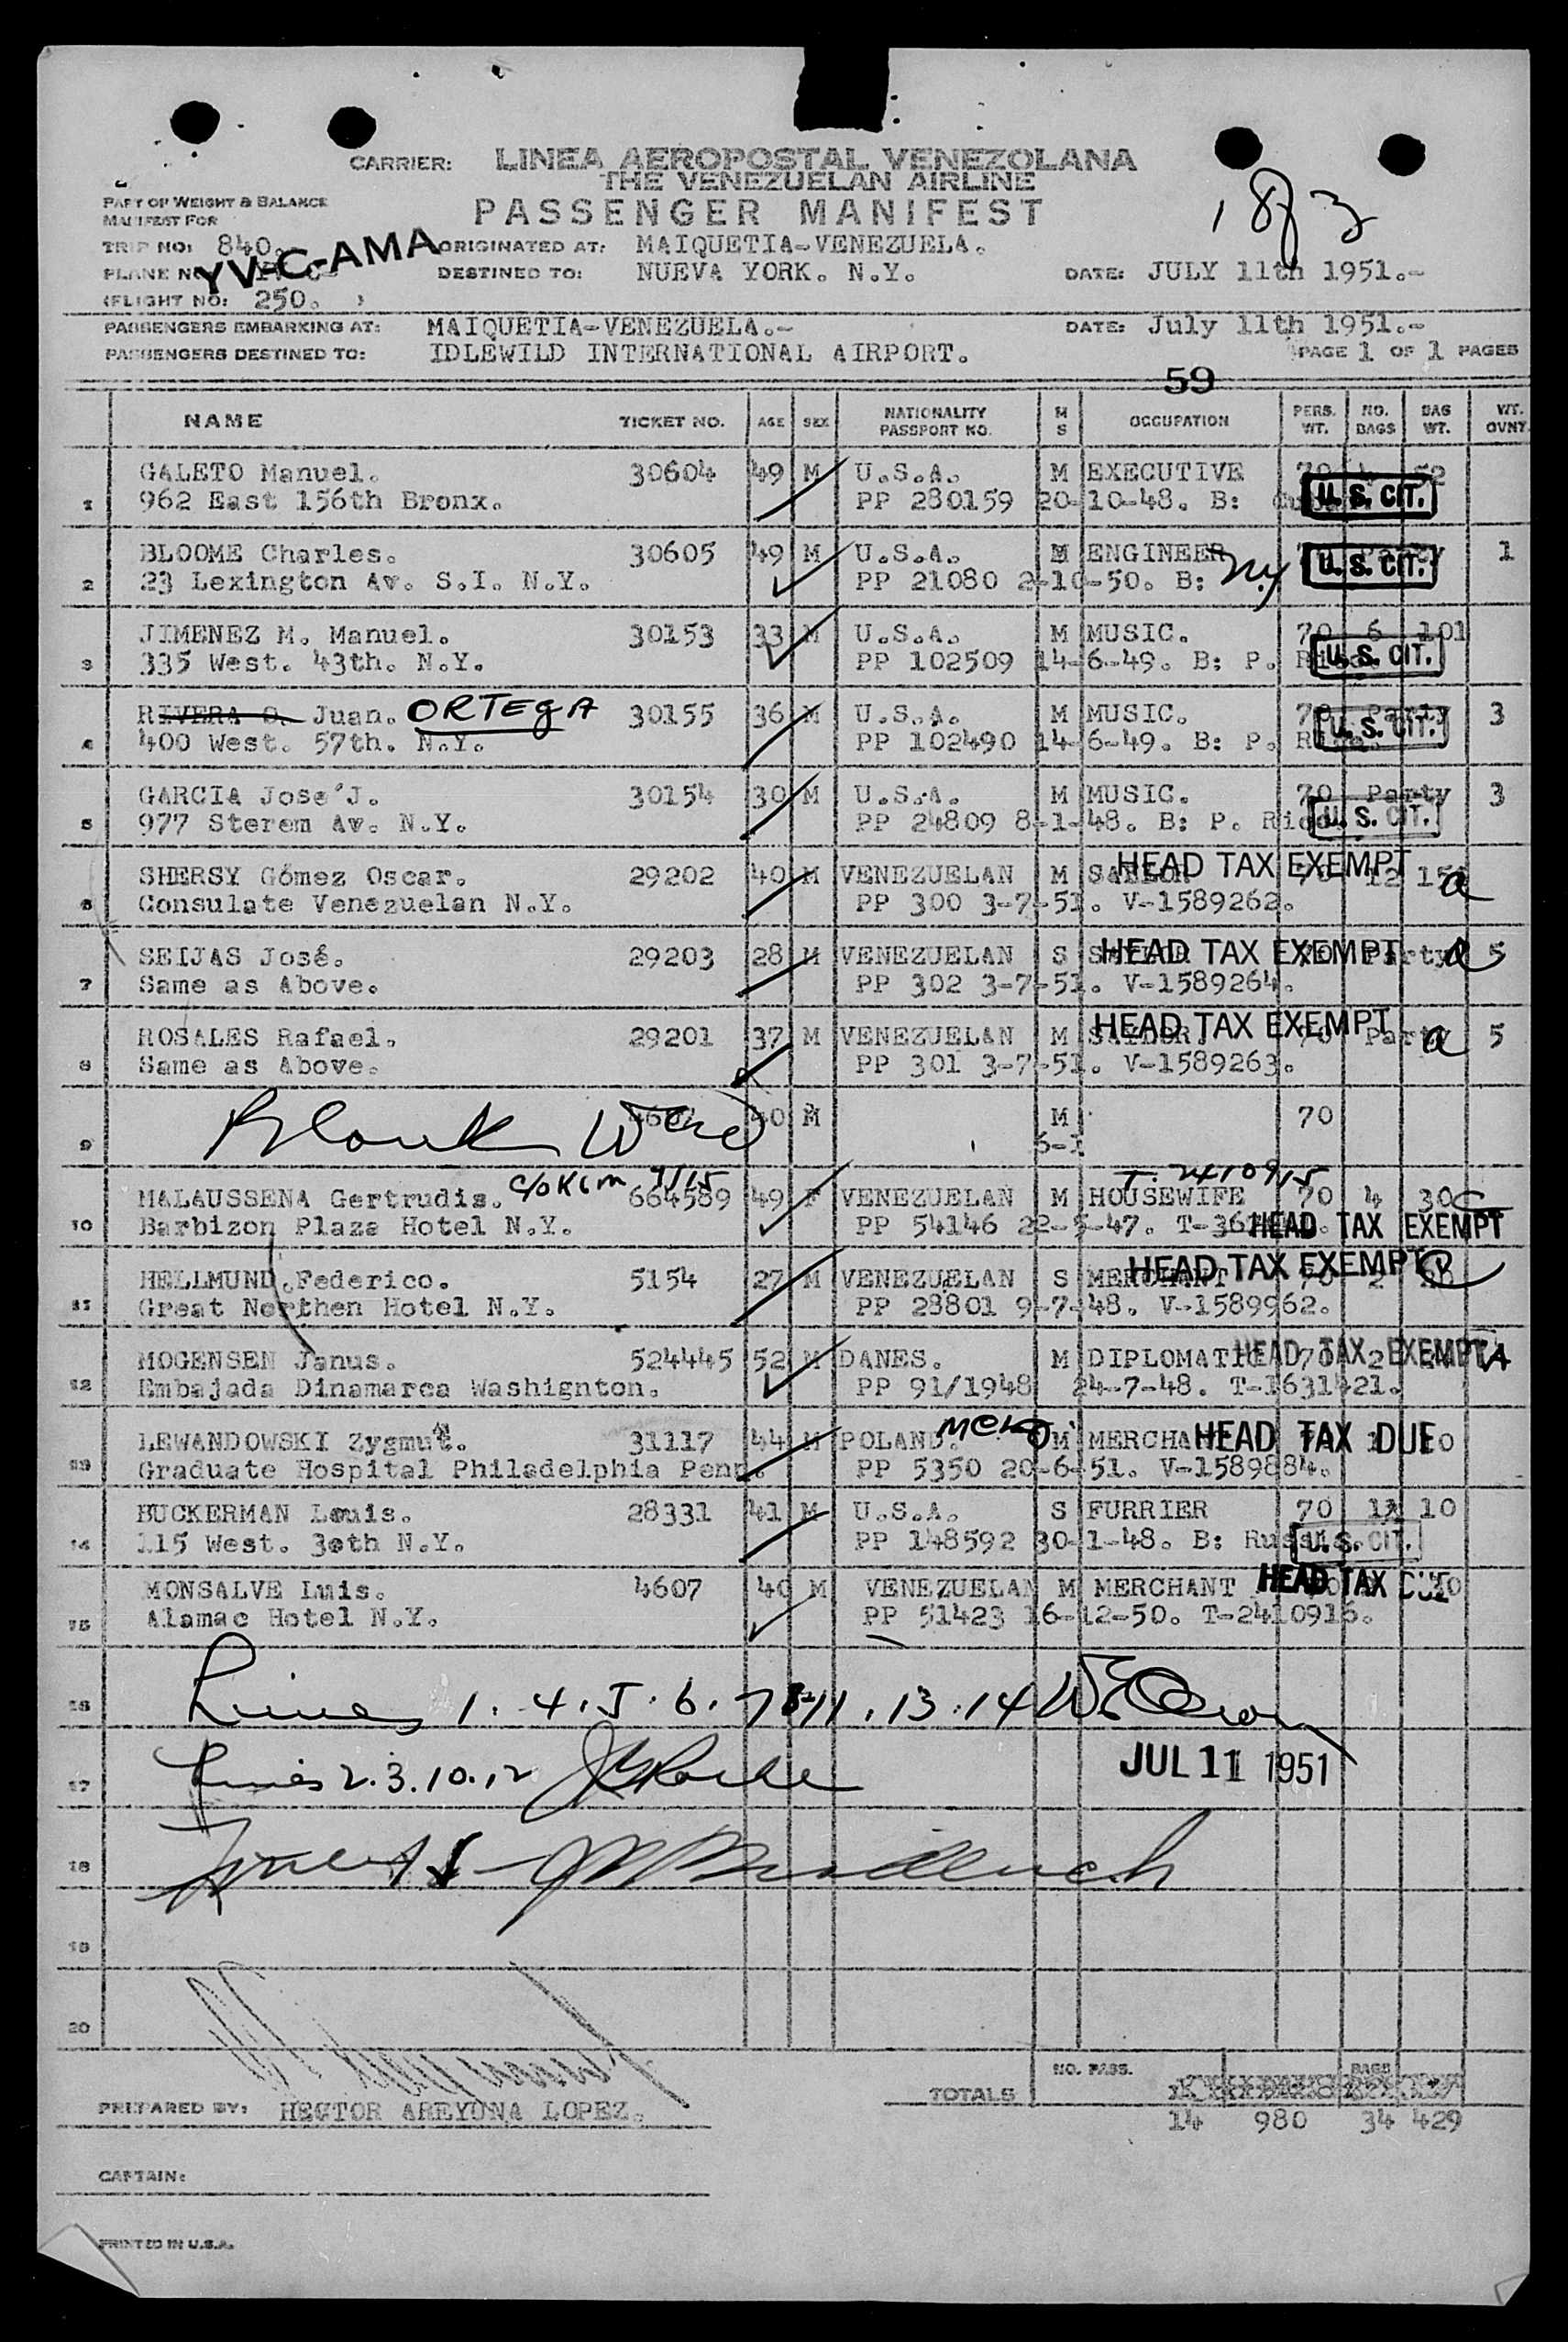 CARRIER: LINEA AEROPOSTAL VENEZOLANA
THE VENEZUELAN AIRLINE
PART OF WEIGHT & BALANCE
MANIFEST FOR
PASSENGER MANIFEST
TRIP NO: 840. ORIGINATED AT: MAIQUETIA-VENEZUELA.
YV-C-AMA
PLANE NO DESTINED TO: NUEVA YORK. N.Y. DATE: JULY 11th 1951.-
(FLIGHT NO: 250. )
PASSENGERS EMBARKING AT: MAIQUETIA-VENEZUELA.- DATE: July 11th 1951.-
PASSENGERS DESTINED TO: IDLEWILD INTERNATIONAL AIRPORT. PAGE 1 OF 1 PAGES
59
NAME TICKET NO. AGE SEX NATIONALITY PASSPORT NO. M S OCCUPATION PERS. WT. NO. BAGS BAG WT. WT. OVNT.
GALETO Manuel. 30604 49 M U.S.A. M EXECUTIVE 70 4 52
1 962 East 156th Bronx. PP 280159 20-10-48. B: U.S. CIT.
BLOOME Charles. 30605 49 M U.S.A. M ENGINEER 1
2 23 Lexington Av. S.I. N.Y. PP 21080 2-10-50. B: NY U.S. CIT.
JIMENEZ M. Manuel. 30153 33 M U.S.A. M MUSIC. 70 6 101
3 335 West. 43th. N.Y. PP 102509 14-6-49. B: P. Rico. U.S. CIT.
RIVERA O. Juan. ORTEGA 30155 36 M U.S.A. M MUSIC. 70 Party 3
4 400 West. 57th. N.Y. PP 102490 14-6-49. B: P. Rico. U.S. CIT.
GARCIA Jose´J. 30154 30 M U.S.A. M MUSIC. 70 Party 3
5 977 Sterem Av. N.Y. PP 24809 8-1-48. B: P. Rico U.S. CIT.
SHERSY Gómez Oscar. 29202 40 M VENEZUELAN M SAILOR HEAD TAX EXEMPT 70 12
6 Consulate Venezuelan N.Y. PP 300 3-7-51. V-1589262.
SEIJAS José. 29203 28 M VENEZUELAN S SAILOR HEAD TAX EXEMPT 70 Party 5
7 Same as Above. PP 302 3-7-51. V-1589264.
ROSALES Rafael. 29201 37 M VENEZUELAN M SAILOR. HEAD TAX EXEMPT 70 Party 5
8 Same as Above. PP 301 3-7-51. V-1589263.
Blank 40 M M 70
9
c/o KLM 7/15 T-2410915
MALAUSSENA Gertrudis. 664589 49 F VENEZUELAN M HOUSEWIFE 70 4 30
10 Barbizon Plaza Hotel N.Y. PP 54146 22-5-47. HEAD TAX EXEMPT
HELLMUND.Federico. 5154 27 M VENEZUELAN S MERCHANT HEAD TAX EXEMPT 2
11 Great Northen Hotel N.Y. PP 28801 9-7-48. V-1589962.
MOGENSEN Janus. 524445 52 M DANES. M DIPLOMATIC HEAD TAX EXEMPT 70 2
12 Embajada Dinamarca Washignton. PP 91/1948 24-7-48. T-1631421.
LEWANDOWSKI Zygmut. 31117 44 M POLAND. M MERCHANT HEAD TAX DUE
13 Graduate Hospital Philadelphia Penn. PP 5350 20-6-51. V-1589884.
BUCKERMAN Louis. 28331 41 M U.S.A. S FURRIER 70 1 10
14 115 West. 30th N.Y. PP 148592 30-1-48. B: Russia. U.S. CIT.
MONSALVE Luis. 4607 40 M VENEZUELAN M MERCHANT HEAD TAX DUE
15 Alamac Hotel N.Y. PP 51423 16-12-50. T-2410916.
16 Lines 1. 4. 5. 6. 7 8 11. 13. 14
17 Lines 2. 3. 10. 12 JUL 11 1951
18
19
20
NO. PASS. BAGS
TOTALS
PREPARED BY: HECTOR AREYUNA LOPEZ. 14 980 34 429
CAPTAIN:
PRINTED IN U.S.A.